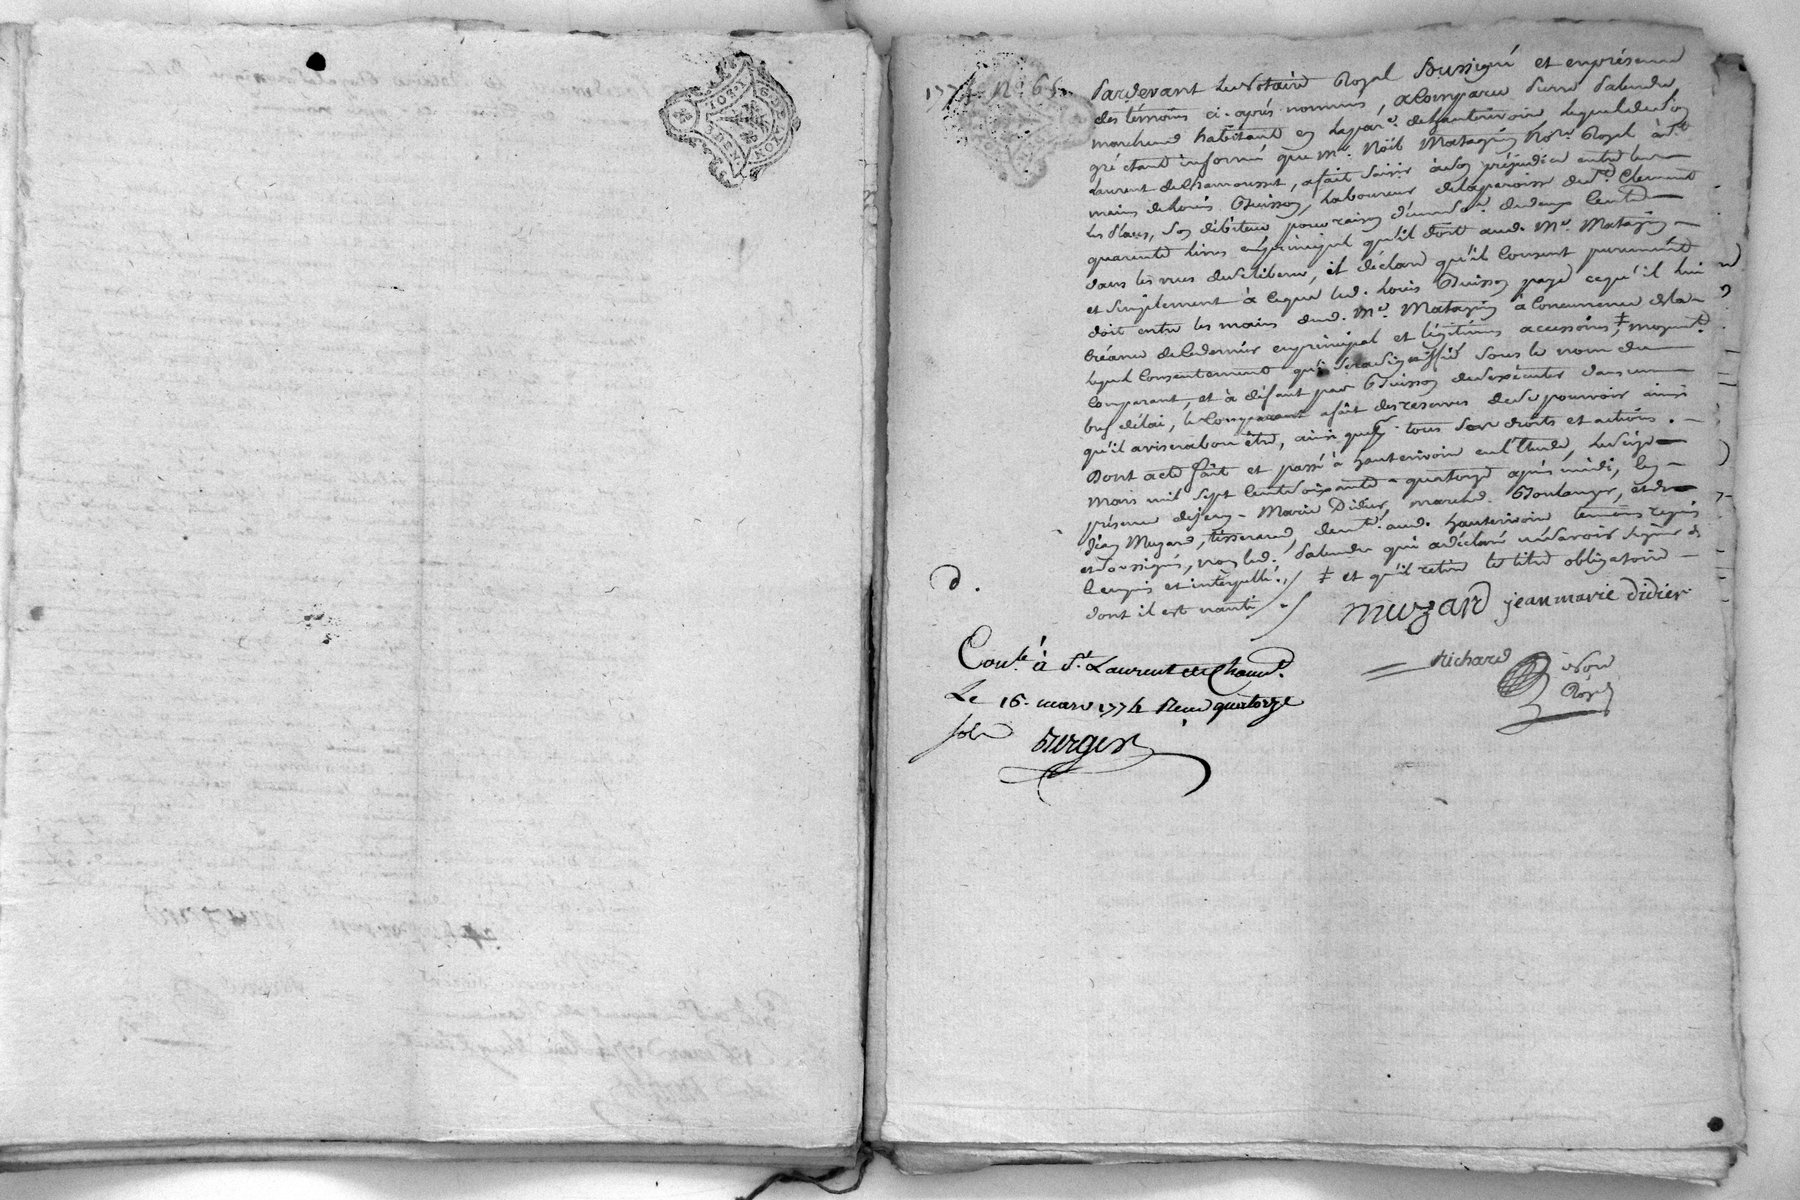 GDE LYON
1774. N° 65.
Pardevant le Notaire Royal soussigné et en présence
des témoins ci-après nommés, a comparu Pierre
marchand habitant en la par.e de hauterivoire lequel de son
gré étant informé que M.e Noël Matagrin No.re Royal à St
Laurent de Chamousset, a fait saisir à son préjudice entre les
mains de Louis Buisson, laboureur de la paroisse de St. Clement
les places, son débiteur pour raison d'une so.e de deux cents
quarante livres en principal qu'il doit aud. M.e Matagrin
dans les vues de se liberer, il déclare qu'il consent purement
et simplement à ce que led. Louis Buisson paye ce qu'il lui
doit entre les mains dud. M.e Matagrin à concurrence de la
créance de ce dernier en principal et légitimes accessoires, ‡ moyent.
lequel consentement qui sera signiffié sous le nom du
comparant, et à défaut par Buisson de l'exécuter dans un
bref délai, le comparant a fait des reserves de se pourvoir ainsi
qu'il avisera bon être, ainsi que de tous ses droits et actions.
Dont acte fait et passé à hauterivoire en l'Etude, le seize
mars mil sept cent soixante-quatorze après midi, en
présence de jean-Marie Didier, marchand Boulanger, et de
jean Muzard, tisserand, demt. aud. hauterivoire temoins requis
et soussignés, non led. qui a déclaré ne savoir signer de
ce enquis et interpellé. ‡ et qu'il retire le titre obligatoire
dont il est nanti
D.
muzard jean marie didier
Richard
No.re
Royal
Con.lé à St. Laurent de Cham.t
Le 16. mars 1774 Reçu quatorze
sols